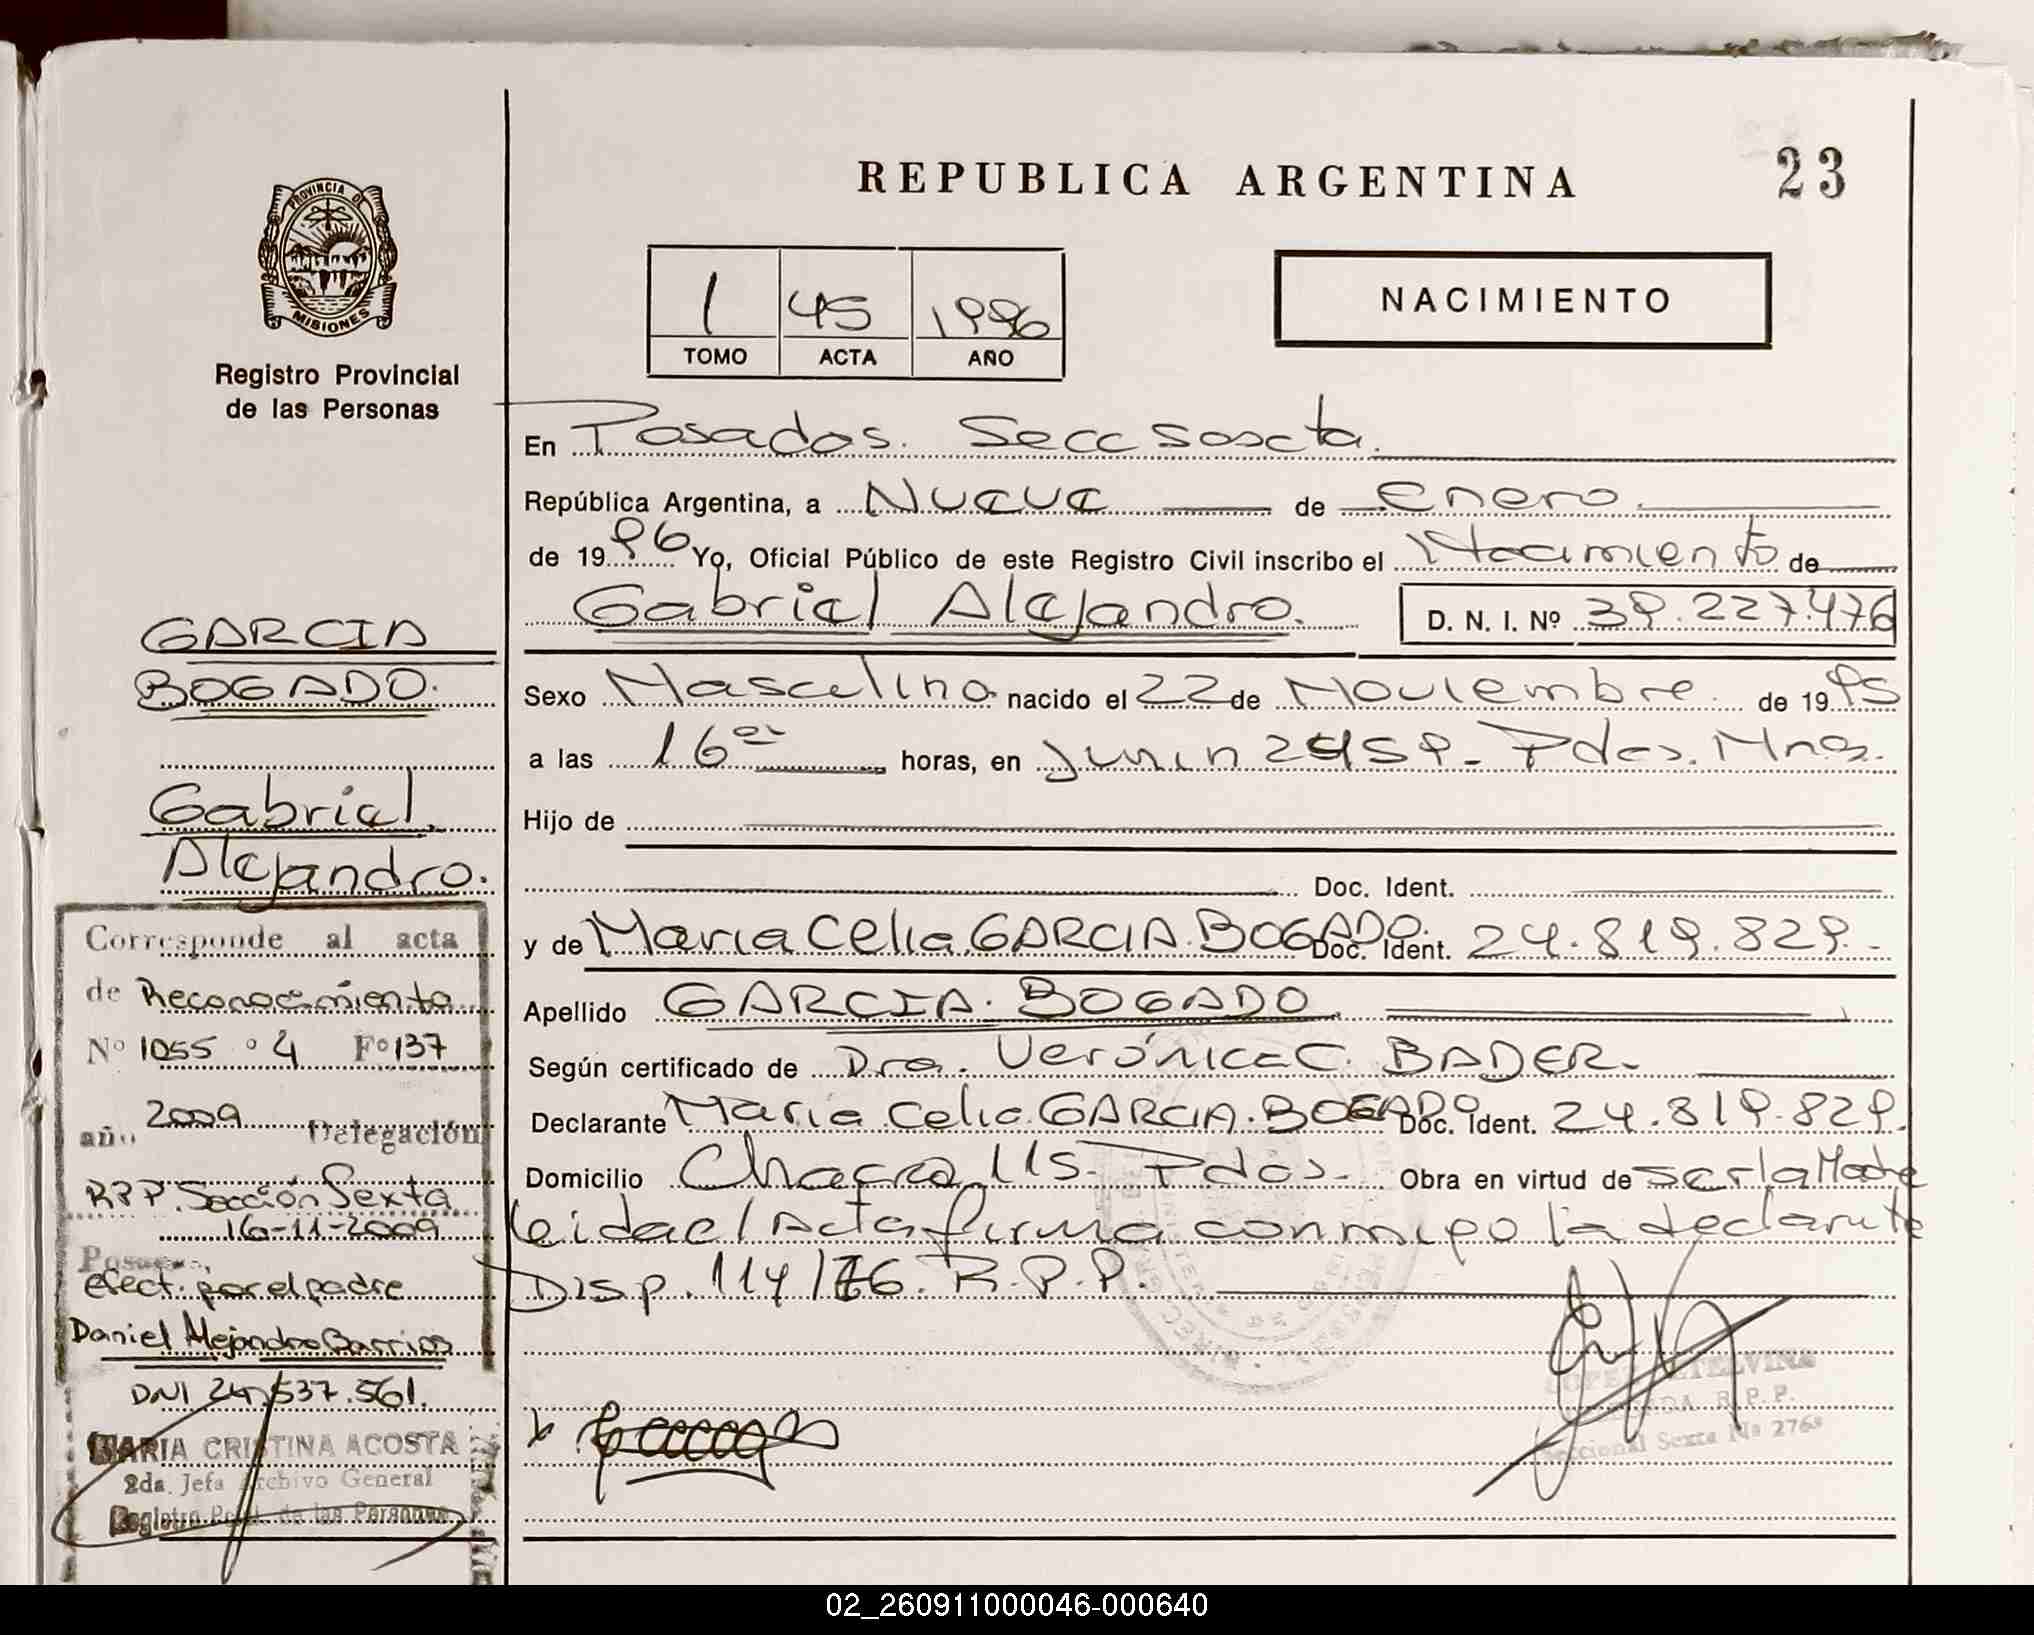 REPUBLICA ARGENTINA
23
PROVINCIA DE
MISIONES
Registro Provincial
de las Personas
1 45 1996
TOMO ACTA AÑO
NACIMIENTO
En Posadas. Secc Sexta.
República Argentina, a Nueve de Enero
de 1996 Yo, Oficial Público de este Registro Civil inscribo el Nacimiento de
Gabriel Alejandro. D. N. I. Nº 39.227.476
Sexo Masculino nacido el 22 de Noviembre de 1995
a las 16 horas, en Junin 2459- Pdas. Mnes.
Hijo de
Doc. Ident.
y de Maria Celia GARCIA BOGADO Doc. Ident. 24.819.829.-
Apellido GARCIA BOGADO
Según certificado de Dra. Verónica C. BADER-
Declarante Maria Celia GARCIA BOGADO Doc. Ident. 24.819.829.
Domicilio Chacra 115- Pdas- Obra en virtud de ser la Madre
leida el Acta firma conmigo la declarante
Disp. 114/76. R.P.P.
GARCIA
BOGADO.
Gabriel
Alejandro.
Corresponde al acta
de Reconocimiento
Nº 1055 º 4 Fº 137
año 2009 Delegación
RPP. Sección Sexta
16-11-2009
efect. por el padre
Daniel Alejandro Barrios
DNI 24.537.561.
MARIA CRISTINA ACOSTA
2da. Jefa Archivo General
Registro Pcial. de las Personas
R. P. P.
Seccional Sexta Nº 2768
02_260911000046-000640